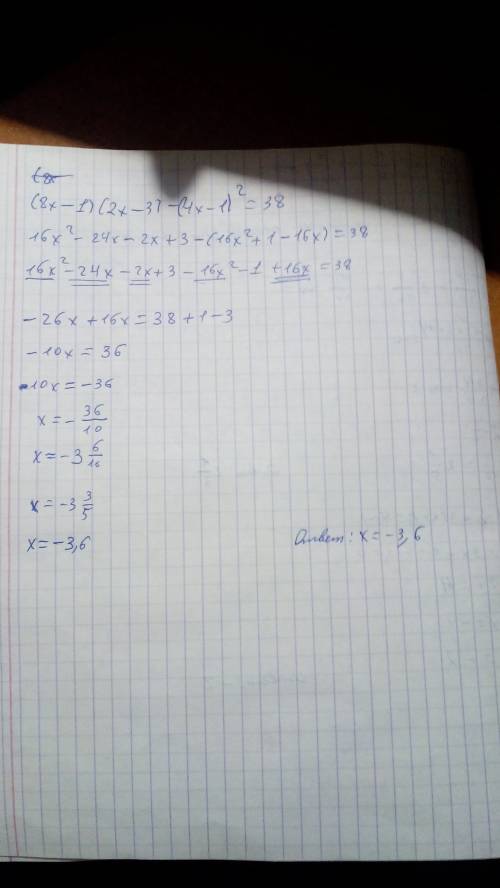 (8x
(8x-1)(2x-3)-(4x-1)²=38
16x²-24x-2x+3-(16x²+1-16x)=38
16x²-24x-2x+3-16x²-1+16x=38
-26x+16x=38+1-3
-10x=36
10x=-36
x=-36/10
x=-3 6/10
x=-3 3/5
x=-3,6
Ответ: x=-3,6